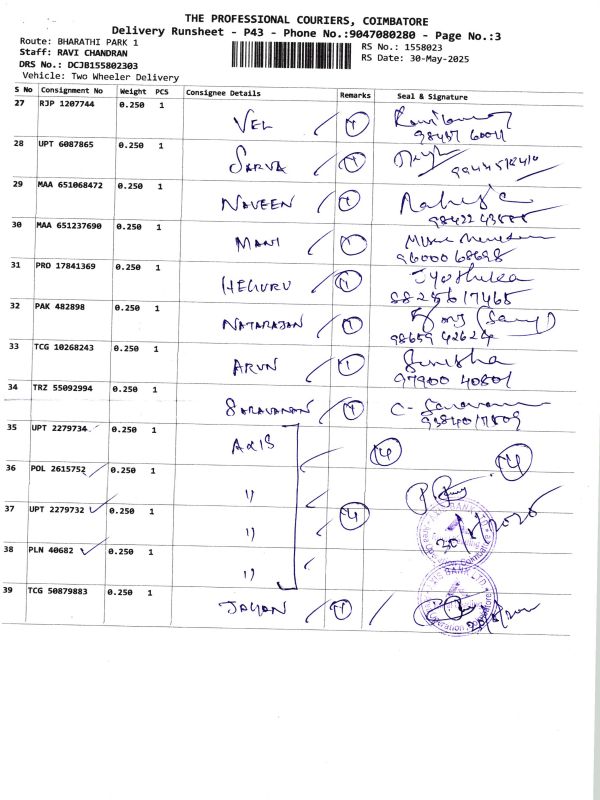 THE PROFESSIONAL COURIERS, COIMBATORE
Delivery Runsheet - P43 - Phone No.:9047080280 - Page No.:3
Route: BHARATHI PARK 1
Staff: RAVI CHANDRAN
DRS No.: DCJB155802303
Vehicle: Two Wheeler Delivery
RS No.: 1558023
RS Date: 30-May-2025
S No Consignment No Weight PCS Consignee Details Remarks Seal & Signature
27 RJP 1207744 0.250 1 VEL
28 UPT 6087865 0.250 1 SARVA
29 MAA 651068472 0.250 1 NAVEEN
30 MAA 651237690 0.250 1 MANI
96000 68698
31 PRO 17841369 0.250 1
88256 17465
32 PAK 482898 0.250 1 NATARAJAN
98659 42624
33 TCG 10268243 0.250 1 ARUN
97900 40801
34 TRZ 55092994 0.250 1 SARAVANAN
93840 17809
35 UPT 2279734 0.250 1 AXIS
36 POL 2615752 0.250 1 "
37 UPT 2279732 0.250 1 "
38 PLN 40682 0.250 1 "
39 TCG 50879883 0.250 1